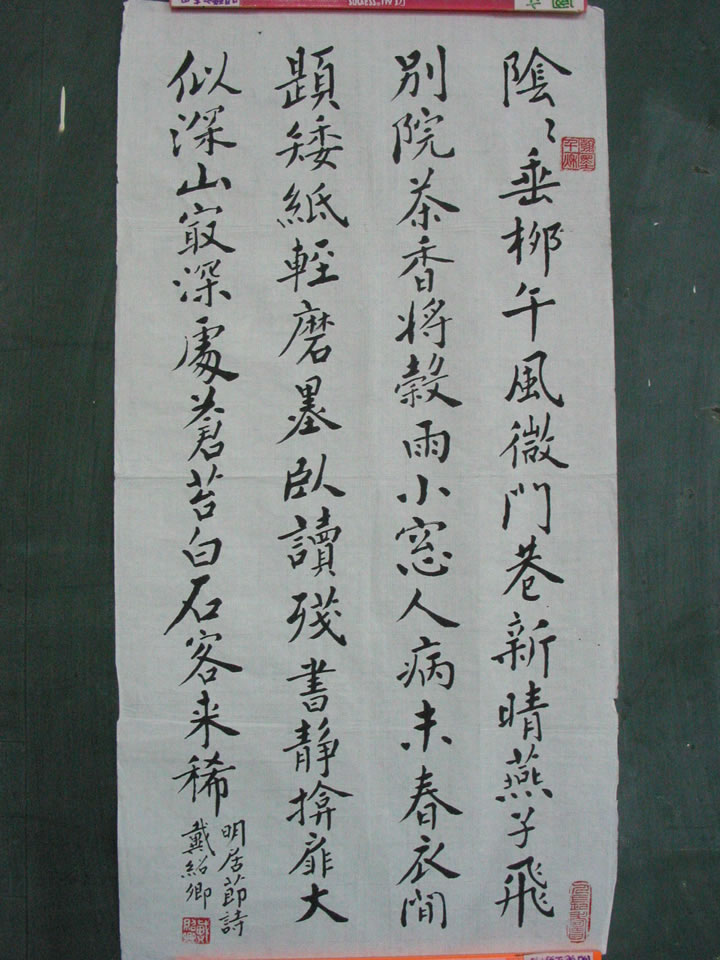 陰〻垂柳午風微門巷新晴燕子飛
別院茶香將穀雨小窓人病未春衣閒
題矮紙輕磨墨臥讀殘書靜揜扉大
似深山㝡深處蒼苔白石客来稀
明居節詩
戴紹卿